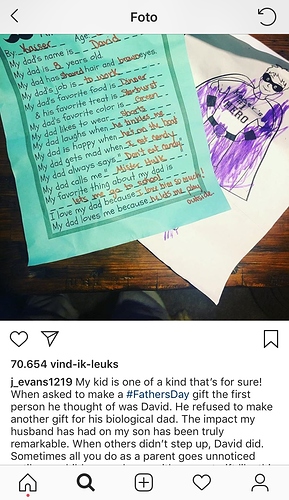 Foto
By Kaiser Age
My dad's name is David
My dad is 8 years old.
My dad has shaved hair and brown eyes.
My dad's job is to work
My dad's favorite food is Dinner
& his favorite treat is Starburst
My dad's favorite color is Green
My dad likes to wear Shorts
My dad laughs when he tickles me
My dad is happy when
My dad gets mad when I eat candy
My dad always says " Don't eat candy
My dad calls me " Mister Hulk
My favorite thing about my dad is
lets me go to school
I love my dad because I love him so much!
My dad loves me because he lets me play
outside
HERO
70.654 vind-ik-leuks
j_evans1219 My kid is one of a kind that's for sure!
When asked to make a #FathersDay gift the first
person he thought of was David. He refused to make
another gift for his biological dad. The impact my
husband has had on my son has been truly
remarkable. When others didn't step up, David did.
Sometimes all you do as a parent goes unnoticed